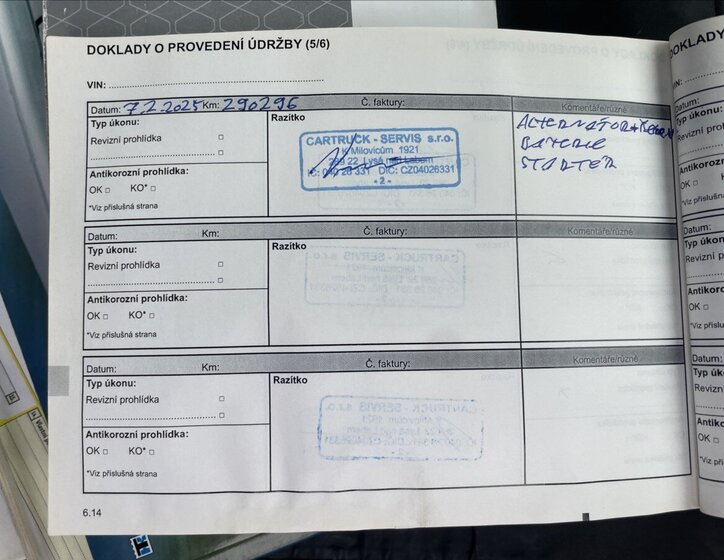 DOKLADY O PROVEDENÍ ÚDRŽBY (5/6)
VIN:
Datum: 7.2.2025 Km: 290296 Č. faktury: Komentáře/různé
Typ úkonu:
Revizní prohlídka
Antikorozní prohlídka:
OK KO*
*Viz příslušná strana
Razítko
CARTRUCK - SERVIS s.r.o.
K Milovicům 1921
289 22 Lysá nad Labem
IČ: 040 26 331 DIČ: CZ04026331
- 2 -
ALTERNATOR+
BATERIE
STARTER
Datum: Km: Č. faktury: Komentáře/různé
Typ úkonu:
Revizní prohlídka
Antikorozní prohlídka:
OK KO*
*Viz příslušná strana
Razítko
Datum: Km: Č. faktury: Komentáře/různé
Typ úkonu:
Revizní prohlídka
Antikorozní prohlídka:
OK KO*
*Viz příslušná strana
Razítko
6.14
DOKLADY
VIN:
Datum:
Typ úkonu
Revizní p
Antikoro
OK
*Viz příslu
Datum
Typ úko
Revizní
Antikor
OK
*Viz přís
Datum:
Typ úk
Reviz
Antik
OK